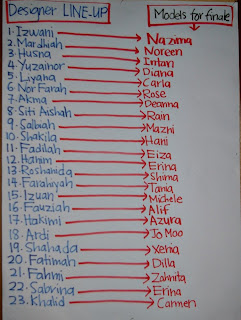 Designer LINE-UP
Models for finale
1. Izwani → Nazima
2. Mardhiah → Noreen
3. Husna → Irrtan
4. Yuzainor → Diana
5. Liyana → Carla
6. Nor Farah → Rose
7. Akma → Deanna
8. Siti Aishah → Rain
9. Salbiah → Mazhi
10. Shakila → Hani
11. Fadilah → Eiza
12. Hanim → Erina
13. Roshanida → Shima
14. Farahiyah → Tania
15. Izuan → Michele
16. Fauziah → Alif
17. Hakimi → Azura
18. Ardi → Jo Moo
19. Shahada → Xenia
20. Fatimah → Dilla
21. Fahmi → Zahnita
22. Sabrina → Erina
23. Khalid → Carmen